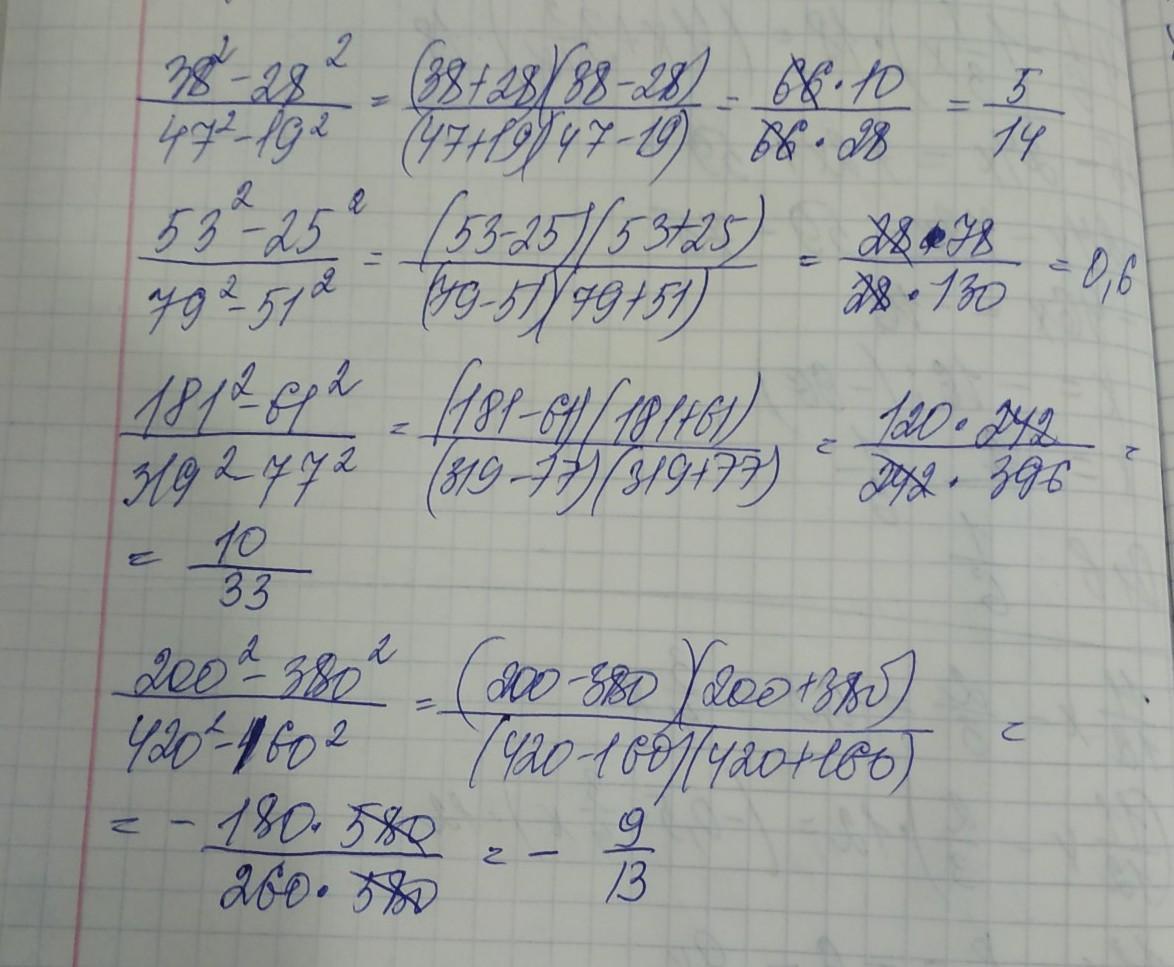 38² - 28² / 47² - 19² = (38+28)(38-28) / (47+19)(47-19) = 66·10 / 66·28 = 5/14
53² - 25² / 79² - 51² = (53-25)(53+25) / (79-51)(79+51) = 28·78 / 28·130 = 0,6
181² - 61² / 319² - 77² = (181-61)(181+61) / (319-77)(319+77) = 120·242 / 242·396 =
= 10/33
200² - 380² / 420² - 160² = (200-380)(200+380) / (420-160)(420+160) =
= - 180·580 / 260·580 = - 9/13